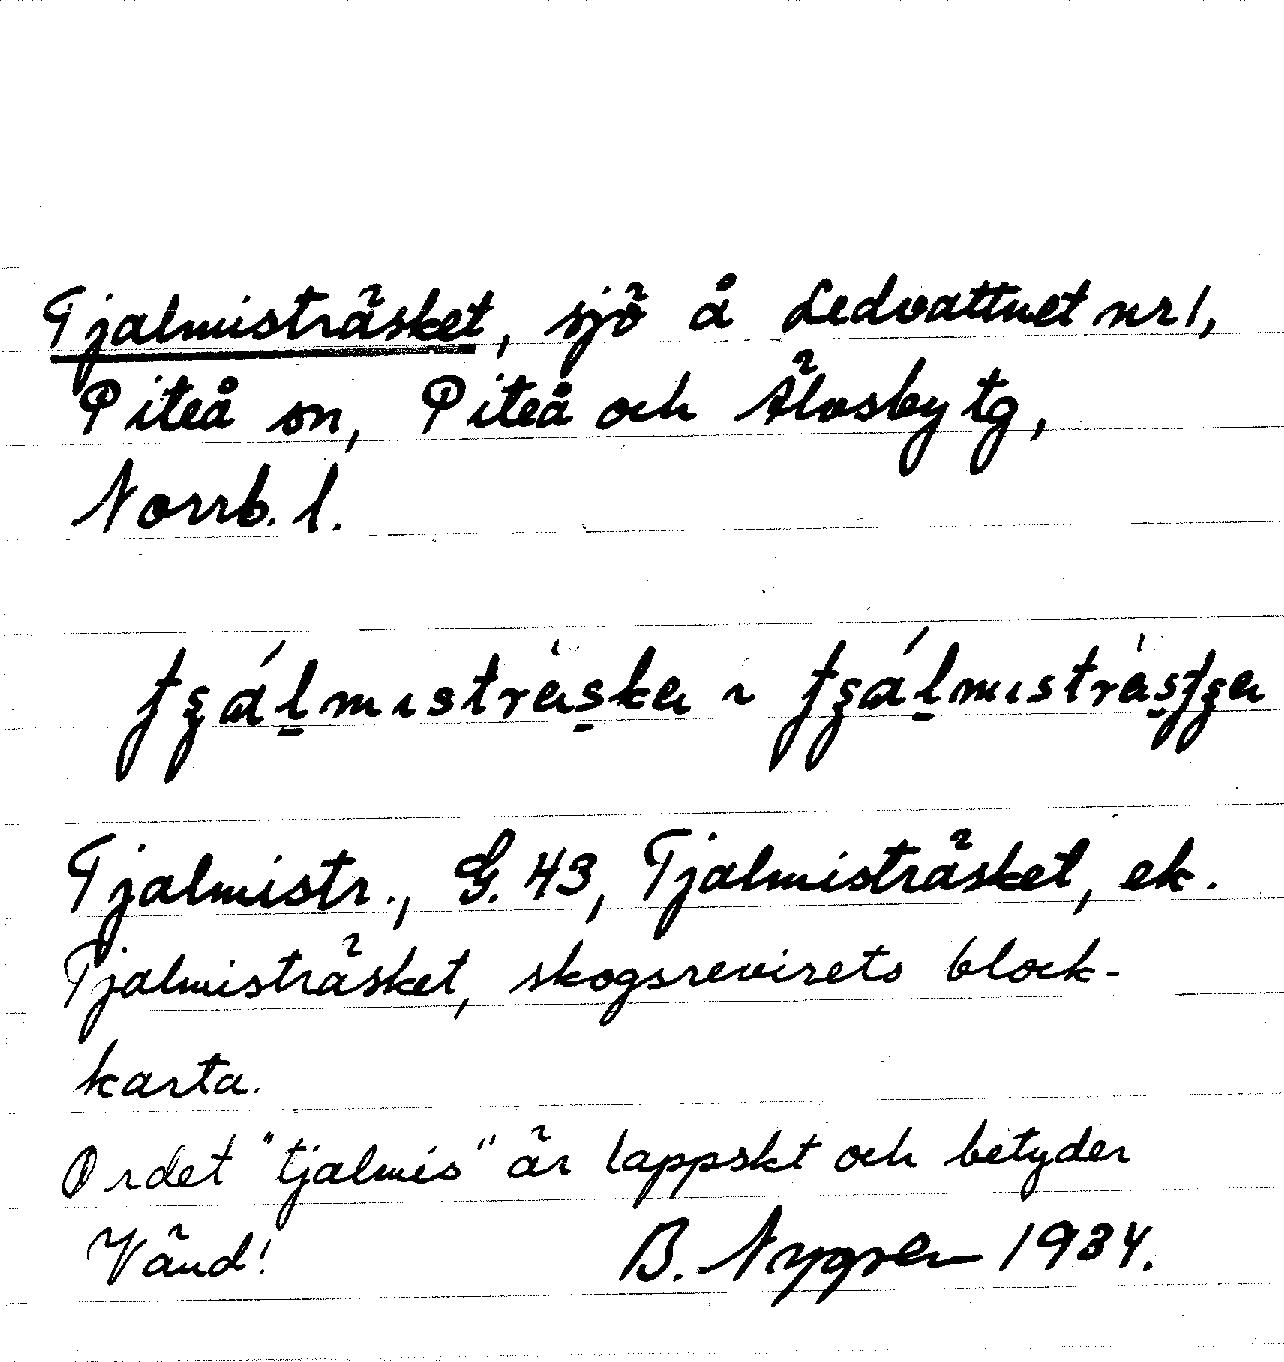 Tjalmisträsket, sjö å Ledvattnet nr 1,
Piteå sn, Piteå och Älvsby tg,
Norrb. l.
Tjalmistr., G. 43, Tjalmisträsket, ek.
Tjalmisträsket, skogsrevirets block-
karta.
Ordet "tjalmis" är lappskt och betyder
Vänd! B. Nygren 1934.